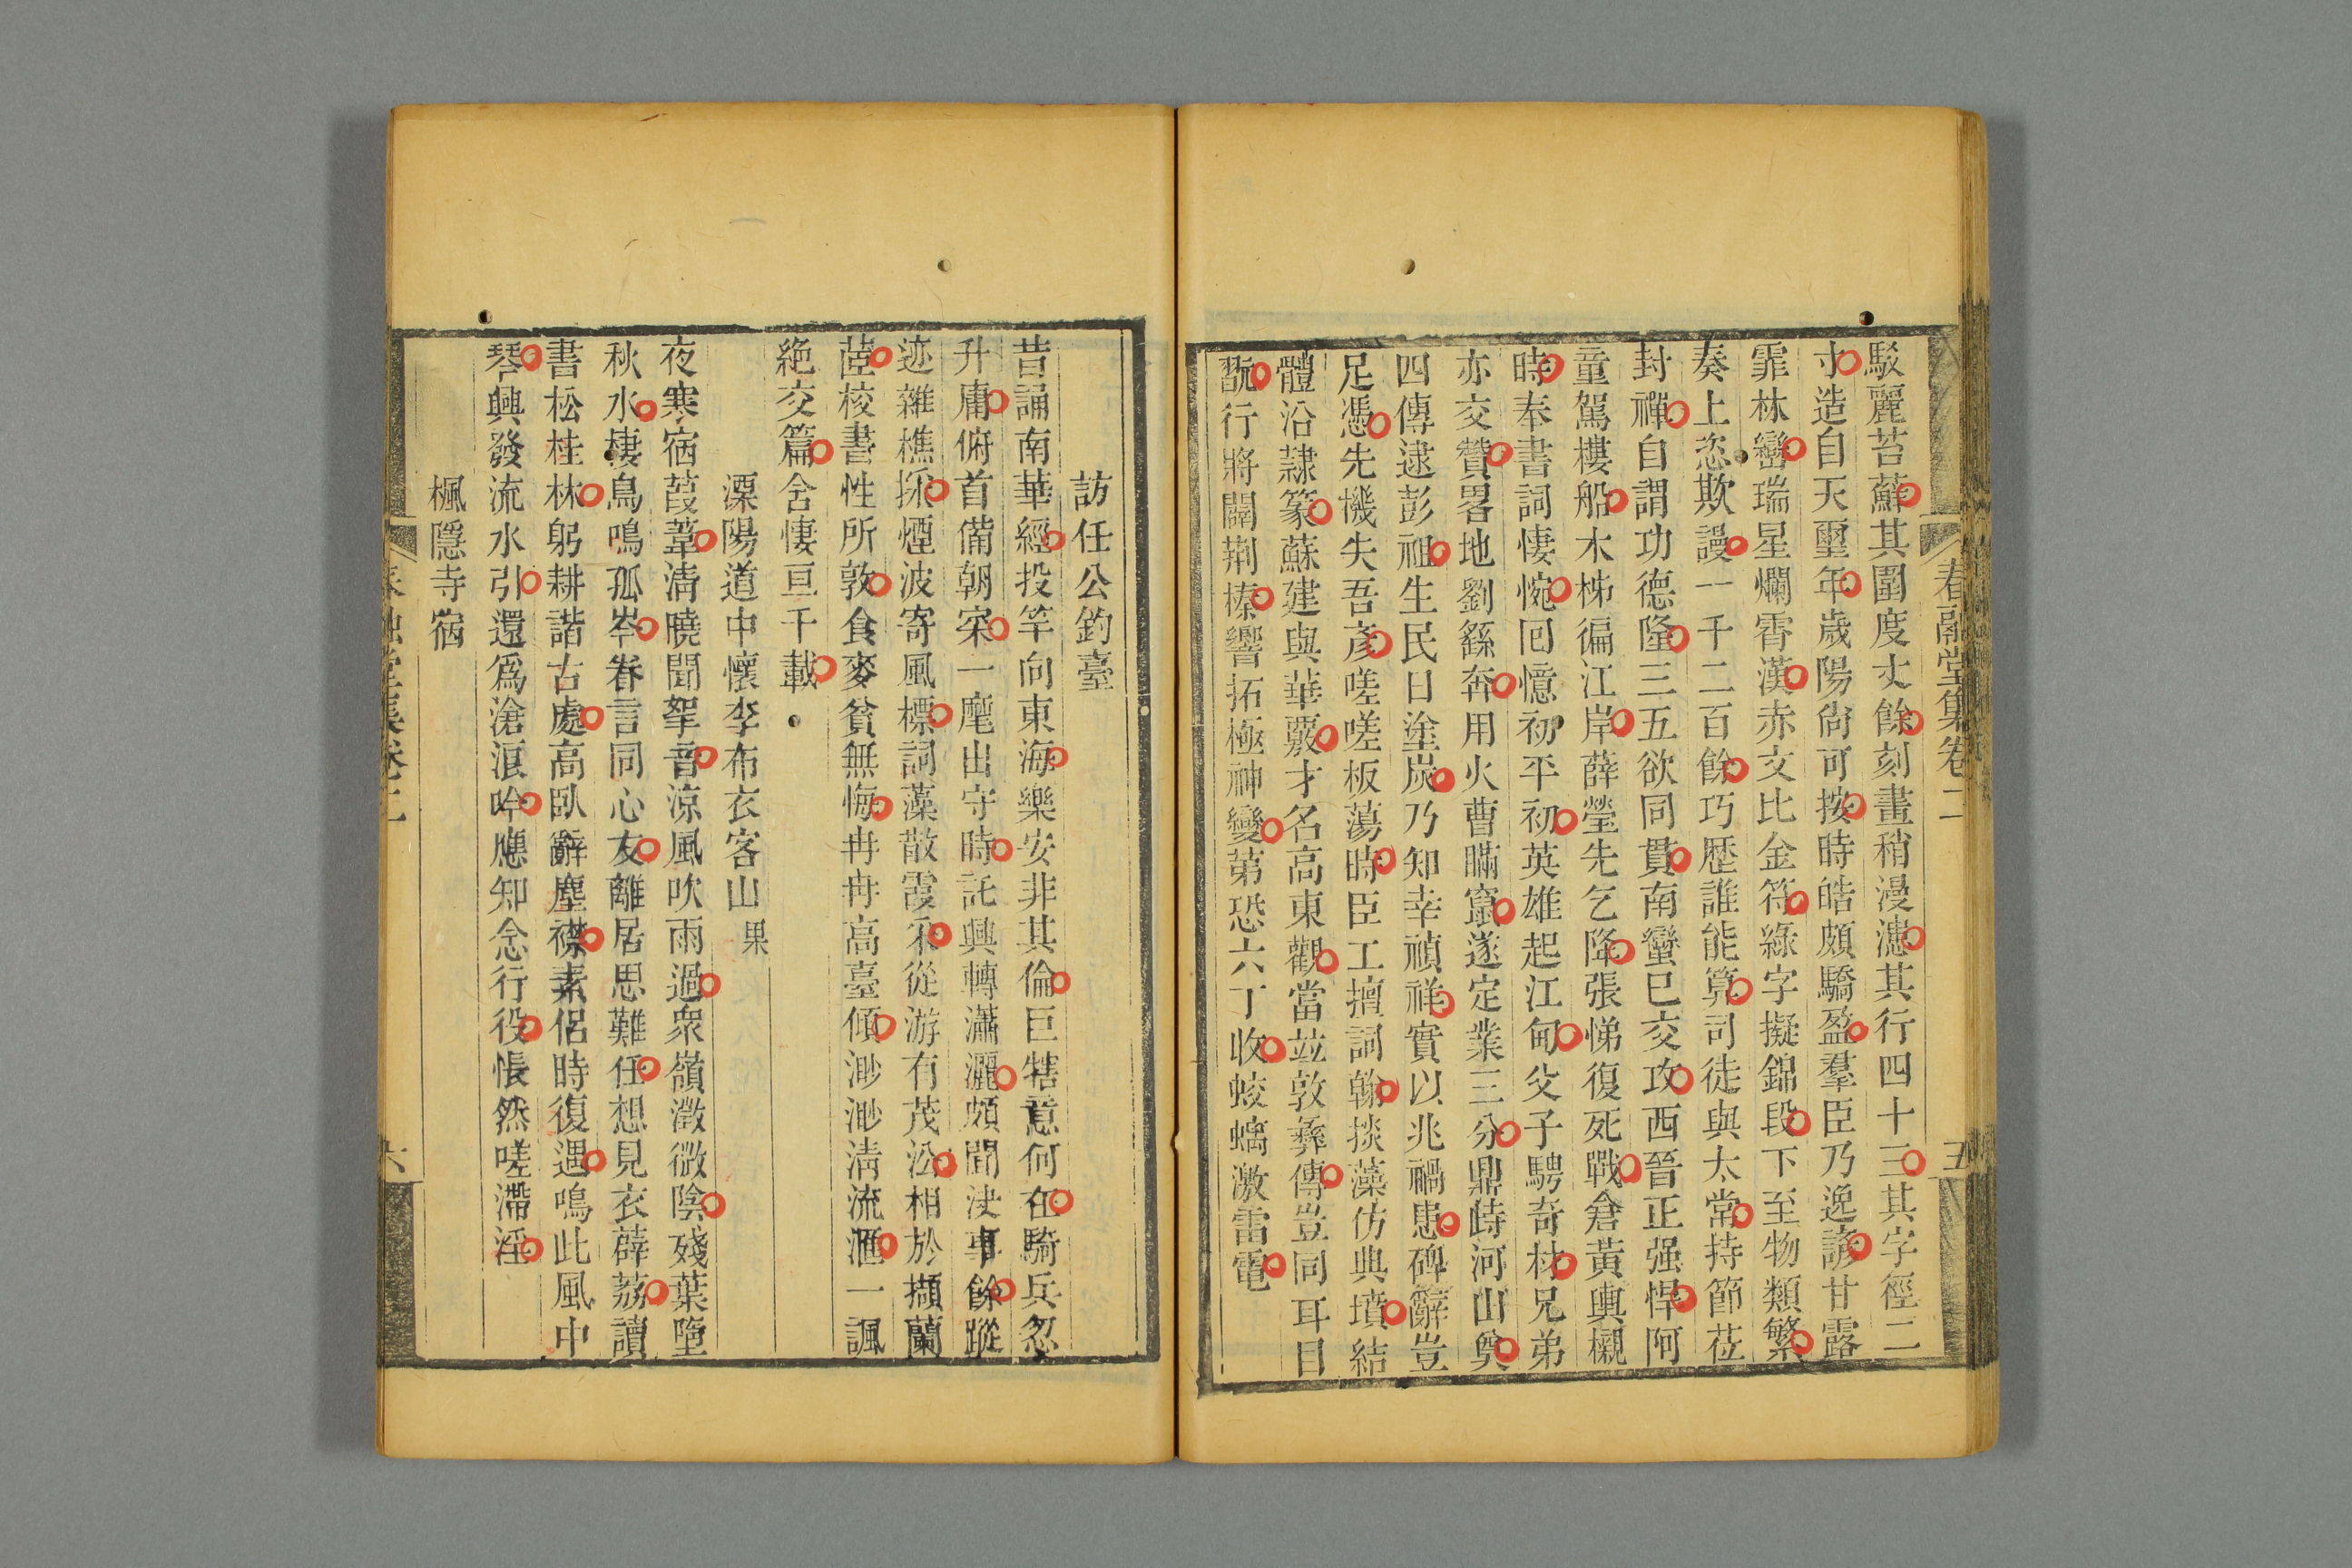 春融堂集卷二
五
駁麗苔蘚其圍度丈餘刻畫稍漫漶其行四十三其字徑二
寸造自天璽年歲陽尙可按時皓頗驕盈羣臣乃逸諺甘露
霏林巒瑞星爛霄漢赤文比金符綠字擬錦段下至物類繁
奏上恣欺謾一千二百餘巧歷誰能算司徒與太常持節莅
封禪自謂功德隆三五欲同貫南蠻已交攻西晉正强悍阿
童駕樓船木柹徧江岸薛瑩先乞降張悌復死戰倉黃輿櫬
時奉書詞悽惋囘憶初平初英雄起江甸父子騁奇材兄弟
亦交贊畧地劉繇奔用火曹瞞竄遂定業三分鼎歭河山奐
四傳逮彭祖生民日塗炭乃知幸禎祥實以兆禍患碑辭豈
足憑先機失吾彥嗟嗟板蕩時臣工擅詞翰掞藻仿典墳結
體沿隸篆蘇建與華覈才名高東觀當竝敦彝傳豈同耳目
翫行將闢荆榛響拓極神變第恐六丁收蛟螭激雷電
訪任公釣臺
昔誦南華經投竿向東海樂安非其倫巨犗意何在騎兵忽
升庸俯首備朝寀一麾出守時託興轉瀟灑頗聞決事餘蹤
迹雜樵採煙波寄風標詞藻散霞采從游有茂㳂相於擷蘭
茝校書性所敦食麥貧無悔冉冉高臺傾渺渺淸流滙一諷
絶交篇含悽亘千載
溧陽道中懷李布衣客山果
夜寒宿葭葦淸曉聞挐音涼風吹雨過衆嶺澂微陰殘葉墮
秋水棲鳥鳴孤岑眷言同心友離居思難任想見衣薜荔讀
書松桂林躬耕諧古處高臥辭塵襟素侶時復遇鳴此風中
琴興發流水引還爲滄浪吟應知念行役悵然嗟滯淫
楓隱寺宿
六